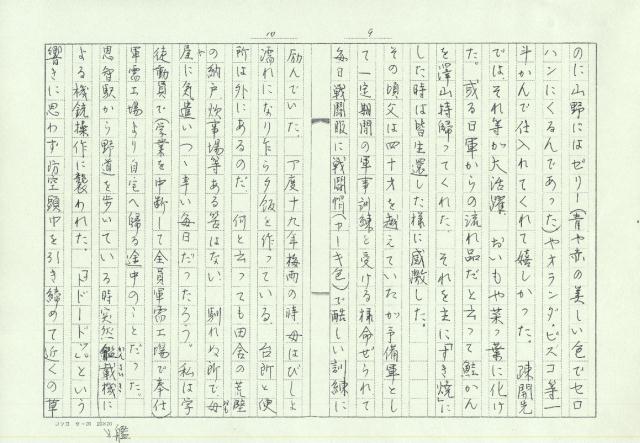 のに山野にはゼリー(青や赤の美しい色でセロ
ハンにくるんであった)やオランダ・ビスコ等一
斗かんで仕入れてくれて嬉しかった。疎開先
では、それ等が大活躍、おいもや菜っ葉に化け
た。或る日軍からの流れ品だと云って鮭かん
を澤山持帰ってくれた。それを主に「すき焼」に
した時は皆生還した様に感激した。
その頃父は四十才を越えていたが予備軍とし
て一定期間の軍事訓練を受ける様命ぜられて
毎日戦闘服に戦闘帽(カーキ色)で酷しい訓練に
励んでいた。丁度十九年梅雨の時母はびしょ
濡れになり乍ら夕飯を作っている。台所と便
所は外にあるのだ。何と云っても田舎の荒壁
の納戸炊事場等ある筈はない。馴れぬ所で母
や
屋に気遣いつゝ辛い毎日だったろう。私は学
徒動員で(学業を中断して全員軍需工場で奉仕)
軍需工場より自宅へ帰る途中のことだった。
恩智駅から野道を歩いている時突然艦載機に
かんさいき
よる機銃操作に襲われた。『ドドードッ』という
響きに思わず防空頭巾を引き締めて近くの草
艦
9
10
コクヨ ケー20 20×20